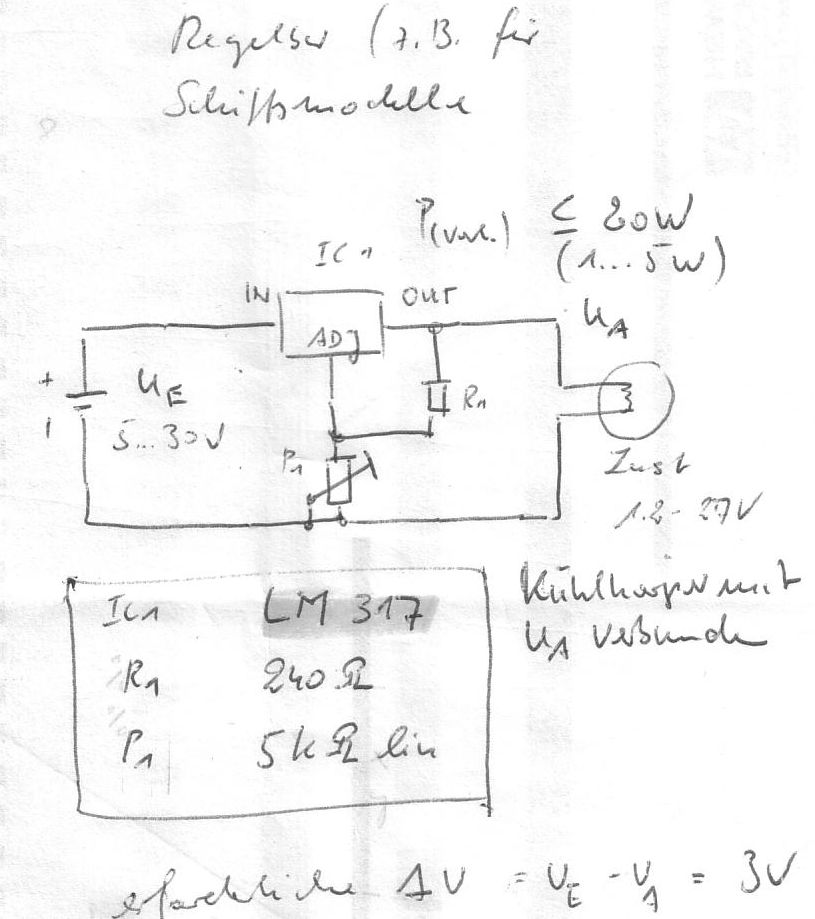 Regelbar (z.B. für
Schiffsmodelle
P(verl.) ≤ 20W
(1...5W)
IC1
IN OUT
ADJ
UA
+
UE
5...30V
R1
P1
1.2-27V
IC1 LM 317
R1 240 Ω
P1 5kΩ lin
Kühlkörper mit
UA verbunden
erforderliche ΔU = UE - UA = 3V